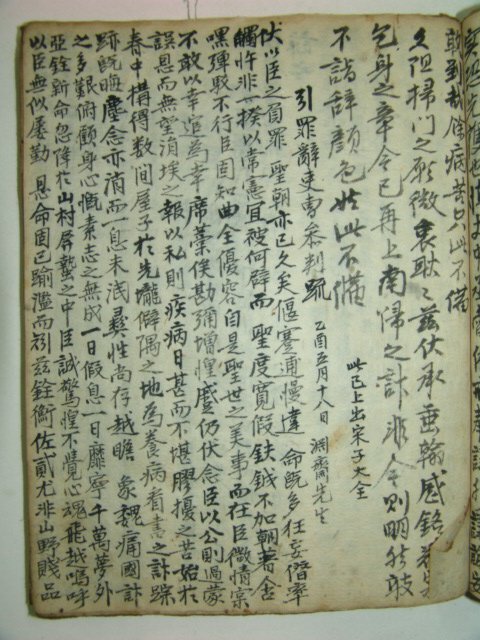 乾到哉餘病苦只此不備
久阻掃門之願微衷耿耿玆伏承垂翰感銘
乞身之章今已再上南歸之計非今則明能敢
不詣辭顔色於此不備
此已上出宋子大全
引罪辭吏曹參判疏 乙酉五月十八日
先生
伏以臣之負罪 聖朝亦已久矣偃蹇逋慢違 命旣多狂妄僭率
觸忤非一揆以常憲宜被何辟而 聖度寬假鈇鉞不加朝著含
嘿彈駁不行臣固知曲全優容自是聖世之美事而在臣微情寔
不敢以幸逭爲幸席藁俟勘彌增惶蹙仍伏念臣以公則過蒙
誤恩而無望涓埃之報以私則疾病日甚而不堪膠擾之苦始於
春中構得數间屋子於先壠僻隅之地爲養病看書之計蹤
跡旣晦塵念亦消而一息未泯彛性尚存越瞻 象魏痛國計
之多艱俯顧身心慨素志之無成一日假息一日靡寧千萬夢外
亞銓新命忽降於山村屏蟄之中臣誠驚惶不覺心魂飛越嗚呼
以臣無似屢勤 恩命固已踰濫而矧玆銓衡佐貳尤非山野賤品